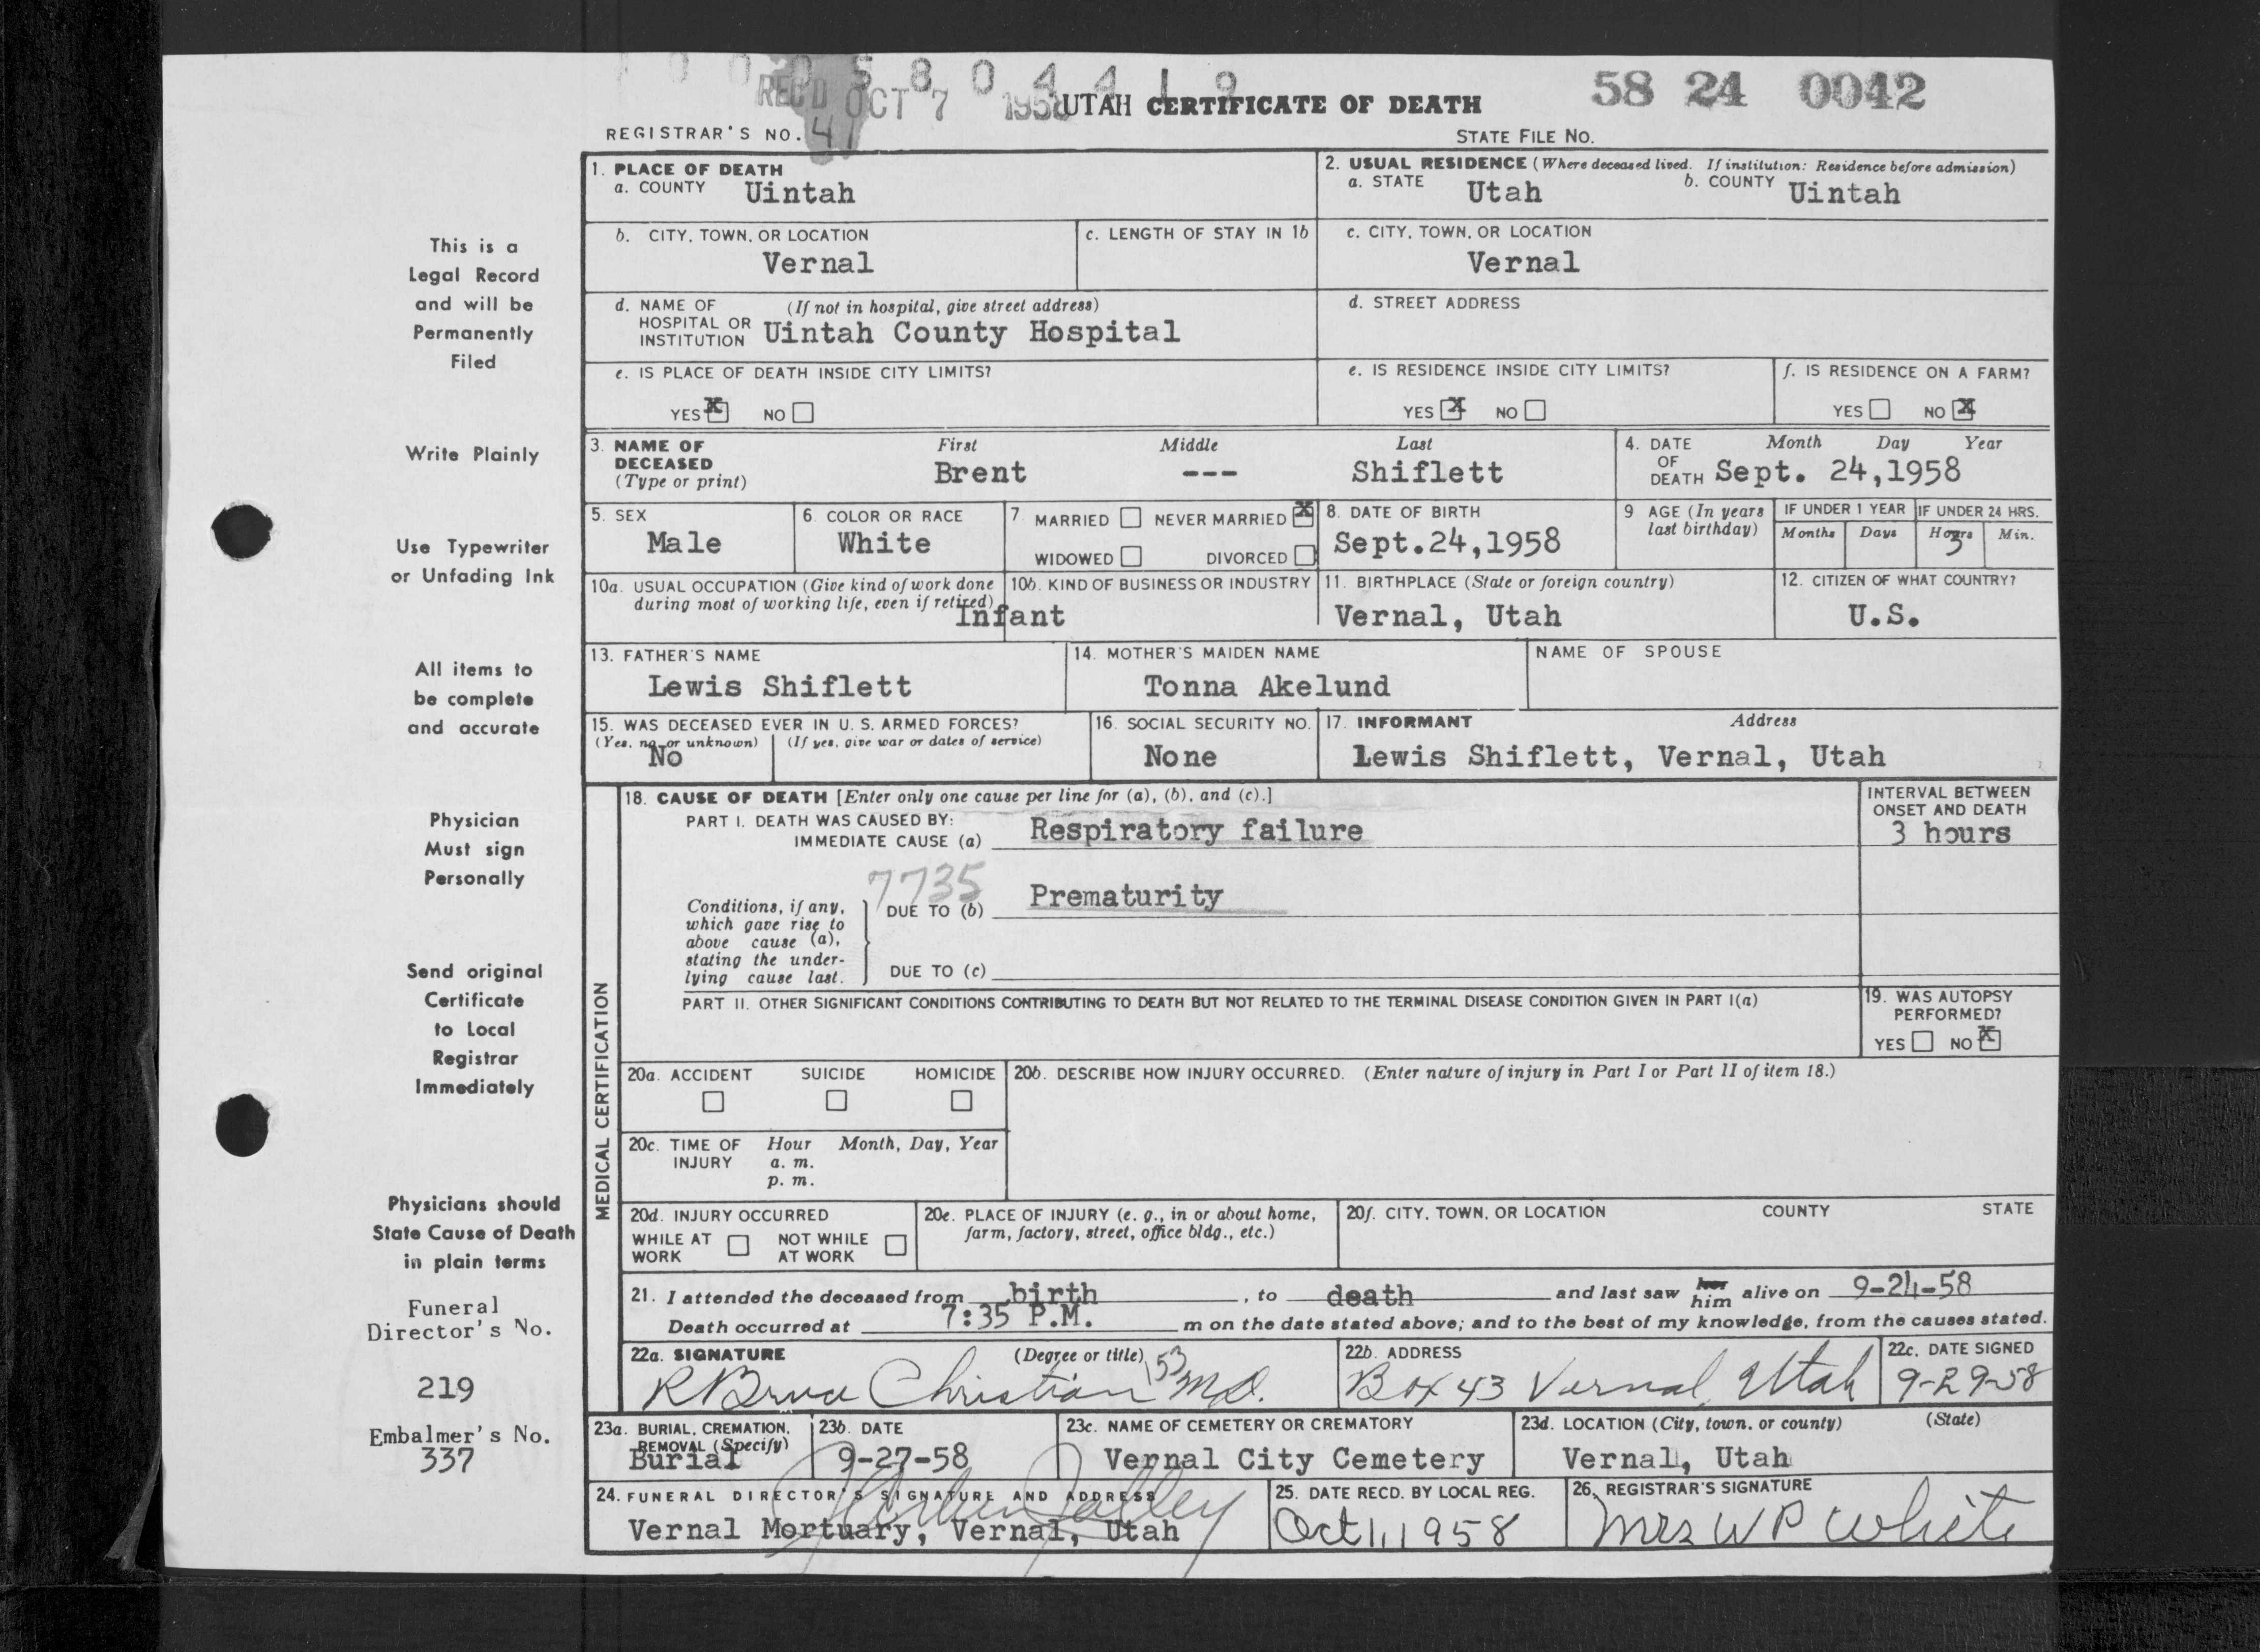 1 0 0 0 5 8 0 4 4 1 9
REC'D OCT 7 1958 UTAH CERTIFICATE OF DEATH 58 24 0042
REGISTRAR'S NO. 41 STATE FILE NO.
1. PLACE OF DEATH
a. COUNTY Uintah
2. USUAL RESIDENCE (Where deceased lived. If institution: Residence before admission)
a. STATE Utah b. COUNTY Uintah
b. CITY, TOWN, OR LOCATION
Vernal
c. LENGTH OF STAY IN 1b
c. CITY, TOWN, OR LOCATION
Vernal
d. NAME OF (If not in hospital, give street address)
HOSPITAL OR
INSTITUTION Uintah County Hospital
d. STREET ADDRESS
e. IS PLACE OF DEATH INSIDE CITY LIMITS?
YES X NO
e. IS RESIDENCE INSIDE CITY LIMITS?
YES X NO
f. IS RESIDENCE ON A FARM?
YES NO X
3. NAME OF First Middle Last
DECEASED
(Type or print) Brent --- Shiflett
4. DATE Month Day Year
OF
DEATH Sept. 24,1958
5. SEX
Male
6. COLOR OR RACE
White
7. MARRIED NEVER MARRIED X
WIDOWED DIVORCED
8. DATE OF BIRTH
Sept.24,1958
9 AGE (In years
last birthday)
IF UNDER 1 YEAR IF UNDER 24 HRS.
Months Days Hours Min.
3
10a. USUAL OCCUPATION (Give kind of work done
during most of working life, even if retired)
Infant
10b. KIND OF BUSINESS OR INDUSTRY
11. BIRTHPLACE (State or foreign country)
Vernal, Utah
12. CITIZEN OF WHAT COUNTRY?
U.S.
13. FATHER'S NAME
Lewis Shiflett
14. MOTHER'S MAIDEN NAME
Tonna Akelund
NAME OF SPOUSE
15. WAS DECEASED EVER IN U. S. ARMED FORCES?
(Yes, no, or unknown) (If yes, give war or dates of service)
No
16. SOCIAL SECURITY NO.
None
17. INFORMANT Address
Lewis Shiflett, Vernal, Utah
MEDICAL CERTIFICATION
18. CAUSE OF DEATH [Enter only one cause per line for (a), (b), and (c).]
PART I. DEATH WAS CAUSED BY:
IMMEDIATE CAUSE (a) Respiratory failure
INTERVAL BETWEEN
ONSET AND DEATH
3 hours
7735
Conditions, if any,
which gave rise to
above cause (a),
stating the under-
lying cause last.
DUE TO (b) Prematurity
DUE TO (c)
PART II. OTHER SIGNIFICANT CONDITIONS CONTRIBUTING TO DEATH BUT NOT RELATED TO THE TERMINAL DISEASE CONDITION GIVEN IN PART I(a)
19. WAS AUTOPSY
PERFORMED?
YES NO X
20a. ACCIDENT SUICIDE HOMICIDE
20b. DESCRIBE HOW INJURY OCCURRED. (Enter nature of injury in Part I or Part II of item 18.)
20c. TIME OF Hour Month, Day, Year
INJURY a. m.
p. m.
20d. INJURY OCCURRED
WHILE AT NOT WHILE
WORK AT WORK
20e. PLACE OF INJURY (e. g., in or about home,
farm, factory, street, office bldg., etc.)
20f. CITY, TOWN, OR LOCATION COUNTY STATE
21. I attended the deceased from birth, to death and last saw her him alive on 9-24-58
Death occurred at 7:35 P.M. m on the date stated above; and to the best of my knowledge, from the causes stated.
22a. SIGNATURE (Degree or title)
R Bruce Christian 53 M.D.
22b. ADDRESS
Box 43 Vernal, Utah
22c. DATE SIGNED
9-29-58
23a. BURIAL, CREMATION,
REMOVAL (Specify)
Burial
23b. DATE
9-27-58
23c. NAME OF CEMETERY OR CREMATORY
Vernal City Cemetery
23d. LOCATION (City, town, or county) (State)
Vernal, Utah
24. FUNERAL DIRECTOR'S SIGNATURE AND ADDRESS
Vernal Mortuary, Vernal, Utah
25. DATE RECD. BY LOCAL REG.
Oct 1, 1958
26. REGISTRAR'S SIGNATURE
Mrs W P White
This is a
Legal Record
and will be
Permanently
Filed
Write Plainly
Use Typewriter
or Unfading Ink
All items to
be complete
and accurate
Physician
Must sign
Personally
Send original
Certificate
to Local
Registrar
Immediately
Physicians should
State Cause of Death
in plain terms
Funeral
Director's No.
219
Embalmer's No.
337